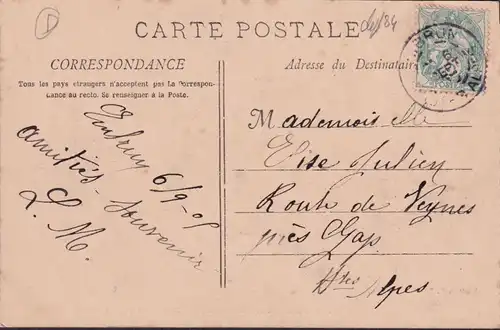 CARTE POSTALE
CORRESPONDANCE
Tous les pays étrangers n'acceptent pas la Correspon-
dance au recto. Se renseigner à la Poste.
Embrun 6/9-05
amitiés - Souvenir
L. M.
Adresse du Destinataire
Mademoiselle
Elise Julien
Route de Veynes
près Gap
Htes Alpes